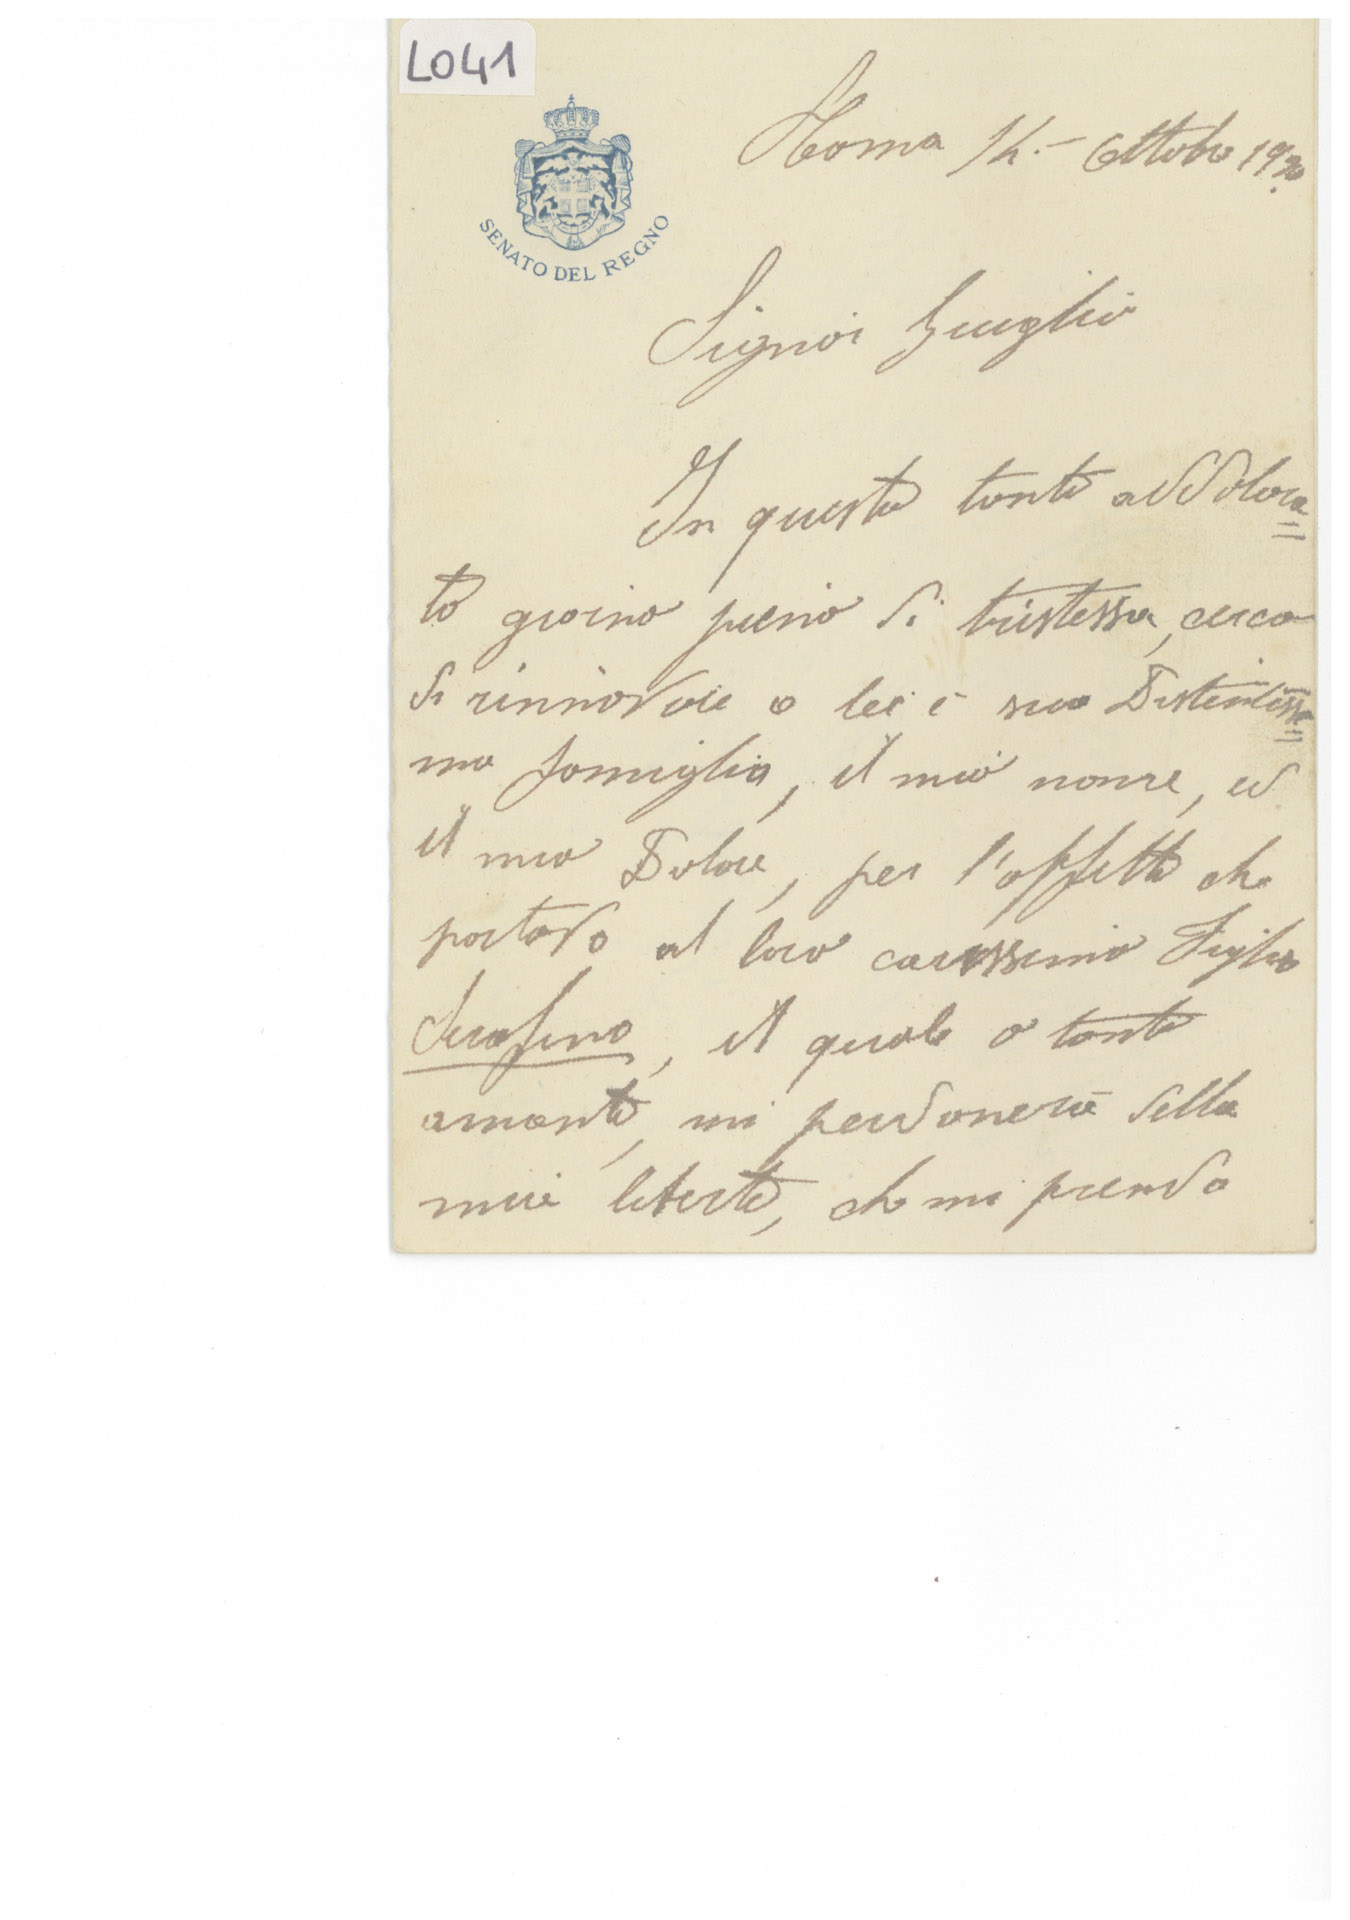 L041
SENATO DEL REGNO
Roma 14.- Ottobre 1930
Signor Guiglio
In questo tanto addolora=
to giorno pieno di tristessa, cerco
di rinnovare a lei e sua Distintissi=
ma famiglia, il mio nome, ed
il mio Dolore, per l'affetto che
portavo al loro carissimo Figlio
Serafino, il quale o tanto
amanto, mi perdonerà della
mia liberta, che mi prendo